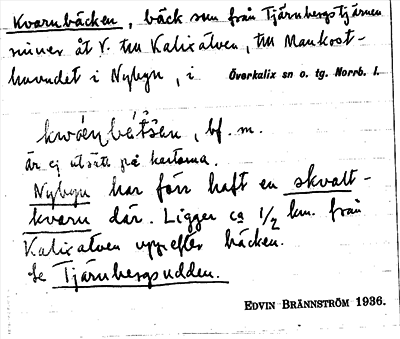 Kvarnbäcken, bäck som från Tjärnbergstjärnen
rinner åt V. till Kalixälven, till Mankost-
huvudet i Nybyn, i Överkalix sn o. tg. Norrb. l.
bf. m.
är ej utsatt på kartorna.
Nybyn har förr haft en skvalt-
kvarn där. Ligger ca 1/2 km. från
Kalixälven uppefter bäcken.
Se Tjärnbergsudden.
EDVIN BRÄNNSTRÖM 1936.